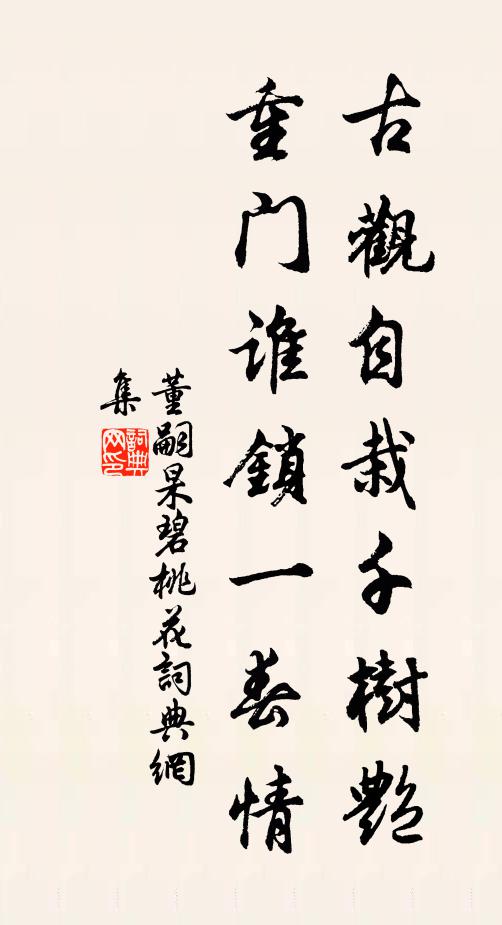 古觀自栽千樹艷
重門誰鎖一春情
董嗣杲碧桃花詞典網
集
詞典
网印